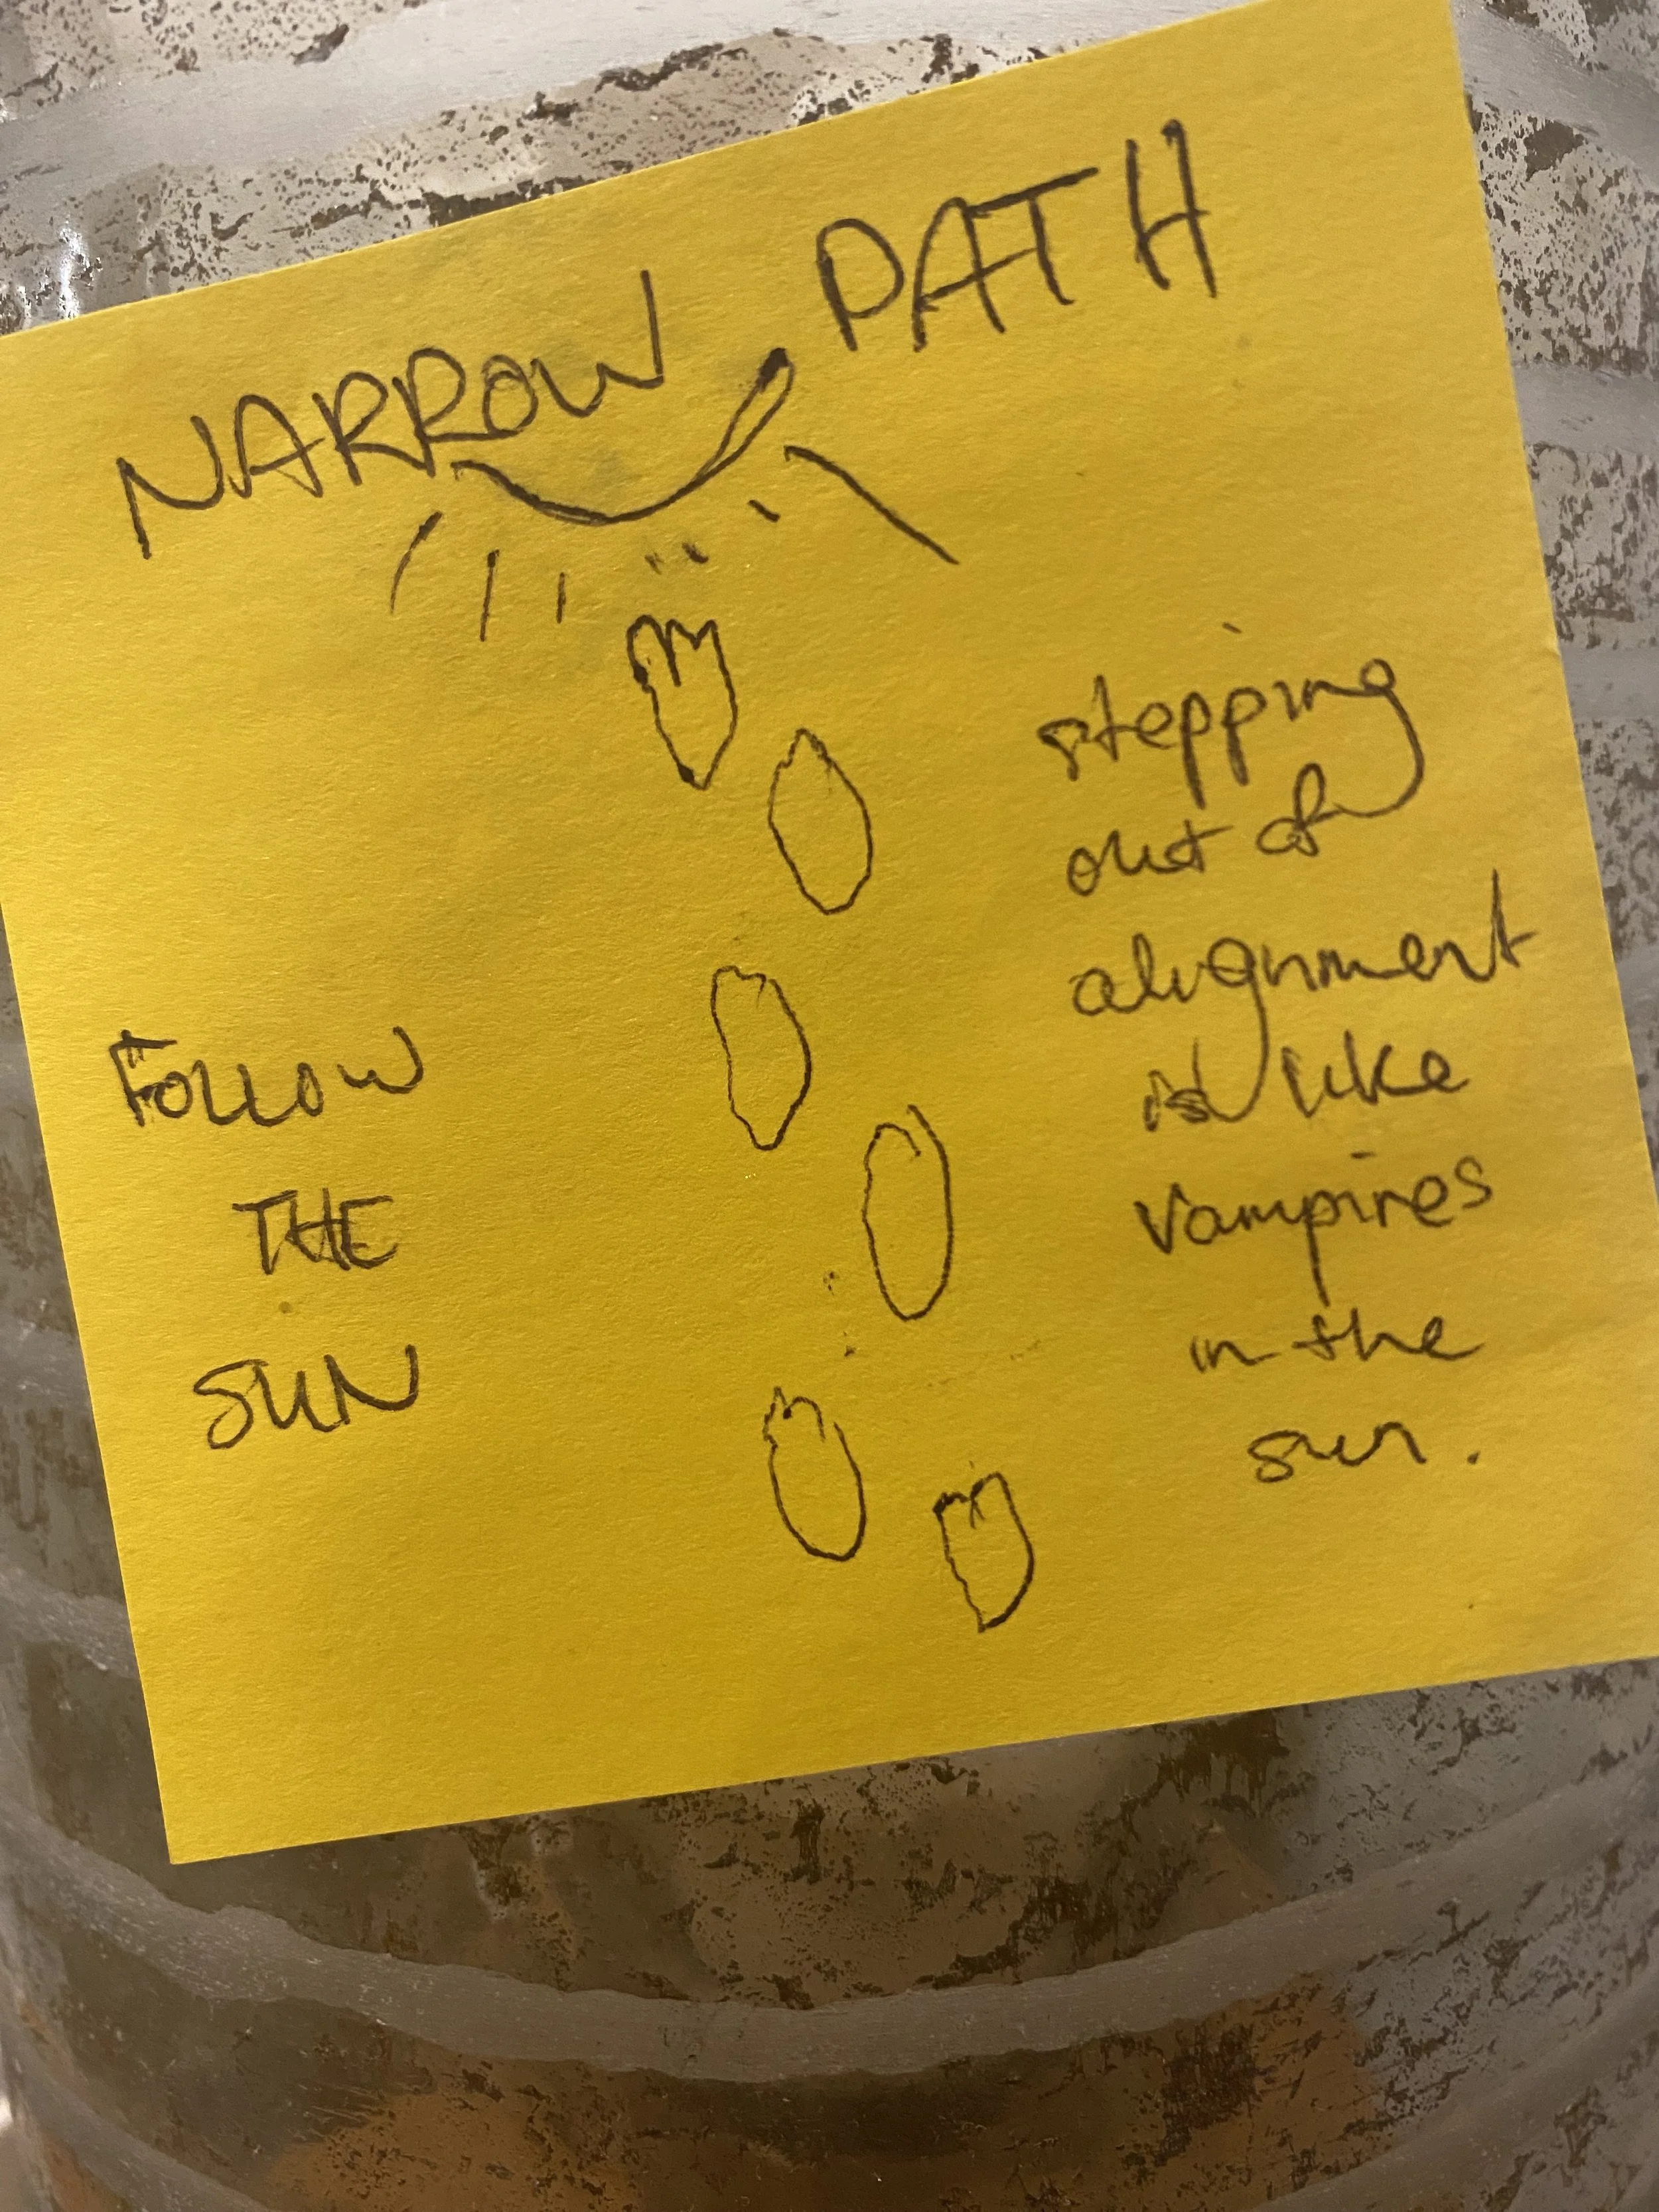 NARROW PATH
FOLLOW
THE
SUN
stepping
out of
alignment
is like
vampires
in the
sun.